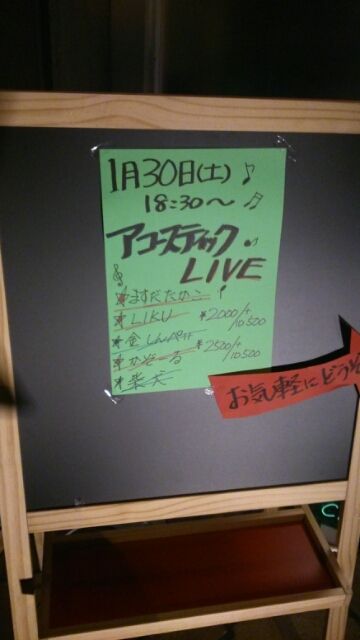 1月30日(土)♪
18:30〜♬
アコースティック
LIVE
★ますだたかこ
★LIKU ¥2000/+
10500
★金しんぺい
¥2500/+
★かぞーる 10500
★柴犬
お気軽にどうぞ